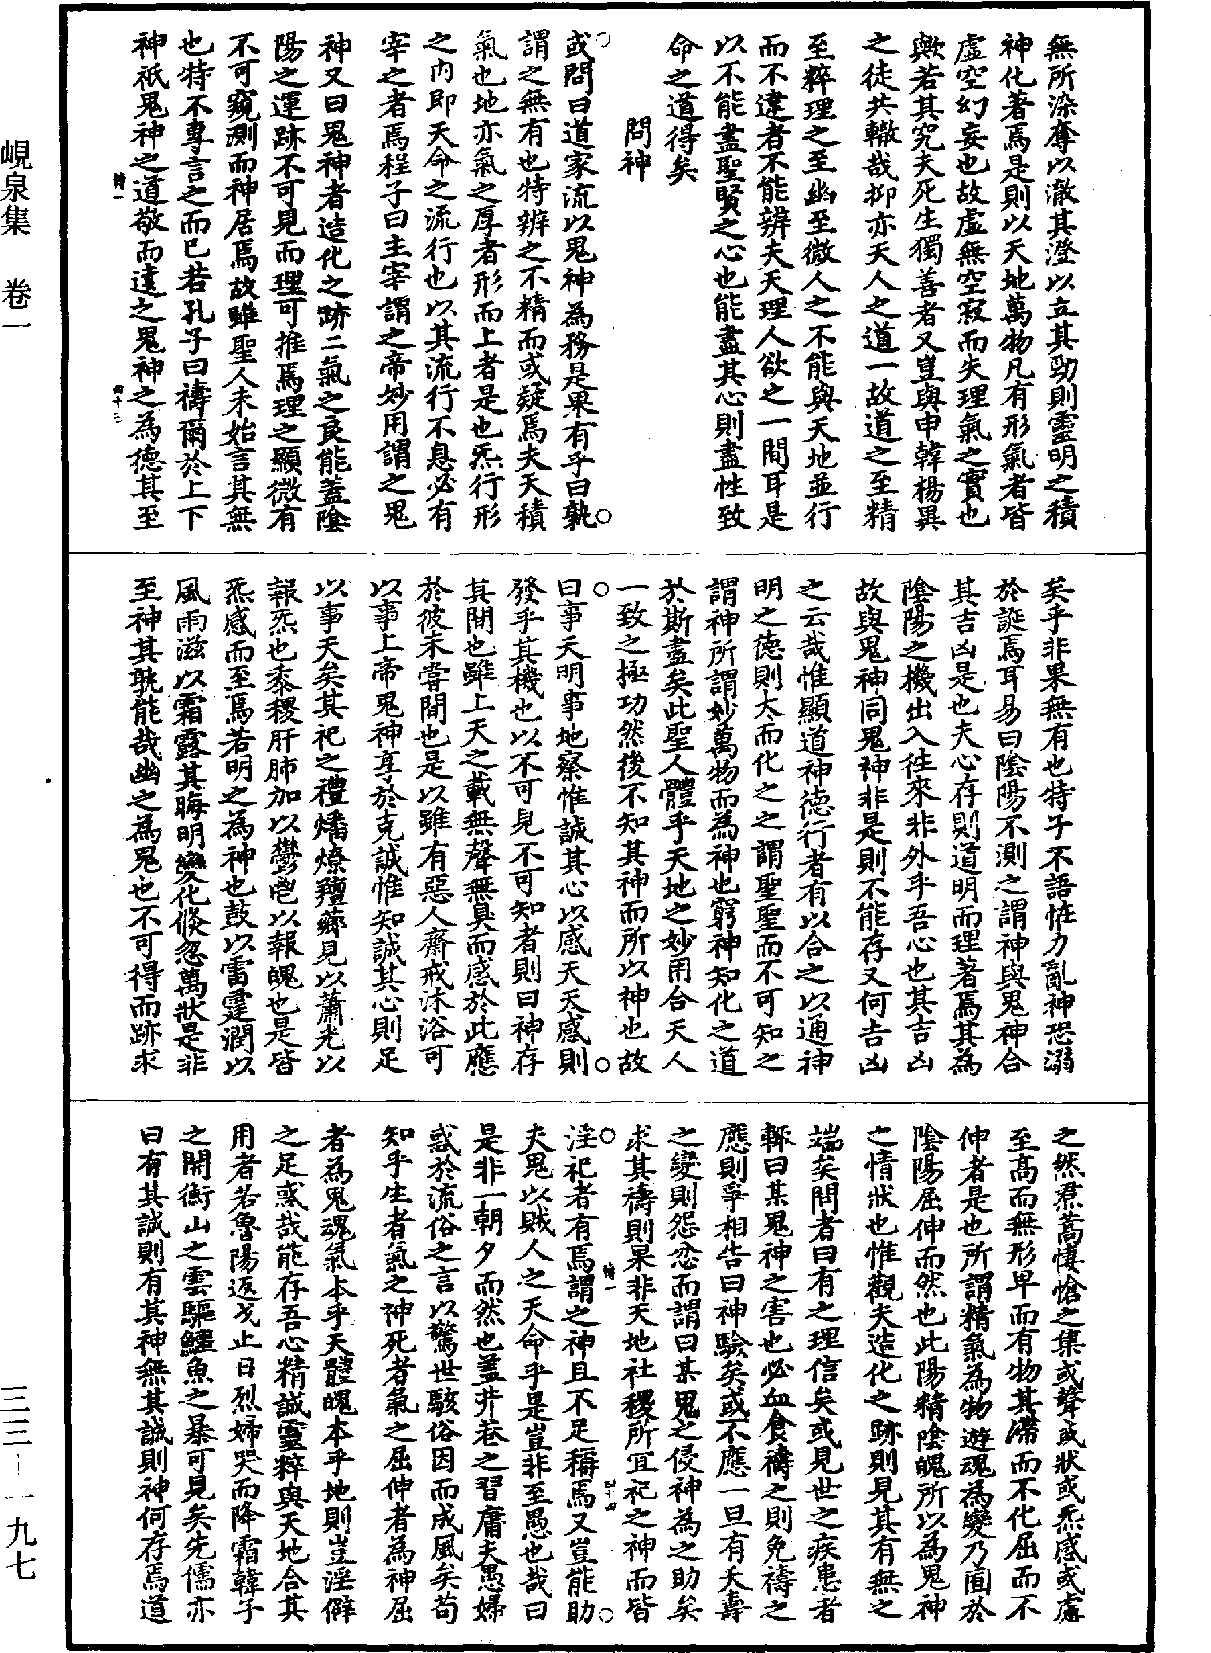 無所染奪以澈其澄以立其勁則靈明之積
神化著焉是則以天地萬物凡有形氣者皆
虛空幻妄也故虛無空寂而失理氣之實也
歟若其究夫死生獨善者又豈與申韓楊異
之徒共轍哉抑亦天人之道一故道之至精
至粹理之至幽至微人之不能與天地並行
而不違者不能辨夫天理人欲之一間耳是
以不能盡聖賢之心也能盡其心則盡性致
命之道得矣
問神
或問曰道家流以鬼神為務是果有乎曰孰
謂之無有也特辨之不精而或疑焉夫天積
氣也地亦氣之厚者形而上者是也炁行形
之內即天命之流行也以其流行不息必有
宰之者焉程子曰主宰謂之帝妙用謂之鬼
神又曰鬼神者造化之跡二氣之良能蓋陰
陽之運跡不可見而理可推焉理之顯微有
不可窺測而神居焉故雖聖人未始言其無
也特不專言之而已若孔子曰禱爾於上下
神祇鬼神之道敬而遠之鬼神之為德其至
矣乎非果無有也特子不語怪力亂神恐溺
於誕焉耳易曰陰陽不測之謂神與鬼神合
其吉凶是也夫心存則道明而理著焉其為
陰陽之機出入往來非外乎吾心也其吉凶
故與鬼神同鬼神非是則不能存又何吉凶
之云哉惟顯道神德行者有以合之以通神
明之德則大而化之之謂聖聖而不可知之
謂神所謂妙萬物而為神也窮神知化之道
於斯盡矣此聖人體乎天地之妙用合天人
一致之極功然後不知其神而所以神也故
曰事天明事地察惟誠其心以感天天感則
發乎其機也以不可見不可知者則曰神存
其間也雖上天之載無聲無臭而感於此應
於彼未嘗間也是以雖有惡人齋戒沐浴可
以事上帝鬼神享於克誠惟知誠其心則足
以事天矣其祀之禮燔燎羶薌見以蕭光以
報炁也黍稷肝肺加以鬱鬯以報魄也是皆
炁感而至焉若明之為神也鼓以雷霆潤以
風雨滋以霜露其晦明變化倏忽萬狀是非
至神其孰能哉幽之為鬼也不可得而跡求
之然焄蒿悽愴之集或聲或狀或炁感或處
至高而無形卑而有物其滯而不化屈而不
伸者是也所謂精氣為物遊魂為變乃囿於
陰陽屈伸而然也此陽精陰魄所以為鬼神
之情狀也惟觀夫造化之跡則見其有無之
端矣問者曰有之理信矣或見世之疾患者
輒曰某鬼神之害也必血食禱之則免禱之
應則孚相告曰神驗矣或不應一旦有夭壽
之變則怨忿而謂曰某鬼之侵神為之助矣
求其禱則果非天地社稷所宜祀之神而皆
淫祀者有焉謂之神且不足稱焉又豈能助
夫鬼以賊人之天命乎是豈非至愚也哉曰
是非一朝夕而然也蓋井巷之習庸夫愚婦
惑於流俗之言以驚世駭俗因而成風矣苟
知乎生者氣之神死者氣之屈伸者為神屈
者為鬼魂氣本乎天體魄本乎地則豈淫僻
之足惑哉能存吾心精誠靈粹與天地合其
用者若魯陽返戈止日烈婦哭而降霜韓子
之開衡山之雲驅鱷魚之暴可見矣先儒亦
曰有其誠則有其神無其誠則神何存焉道
峴泉集 卷一
三三—一九七